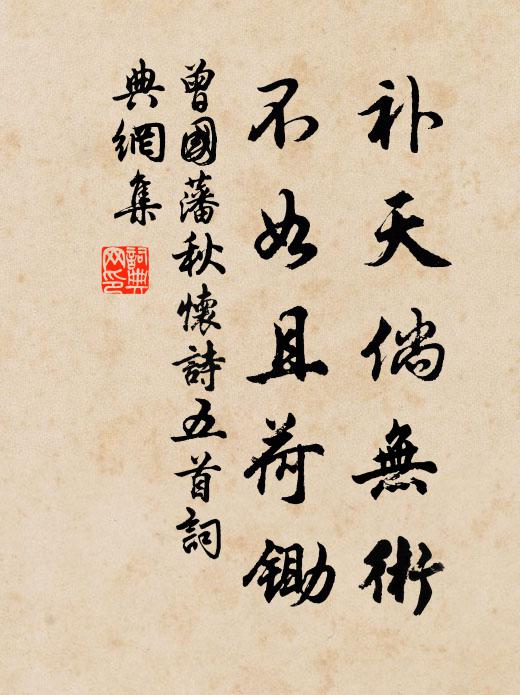 补天倘無術
不如且荷鋤
曾國藩秋懷詩五首詞
典網集
詞典
网印